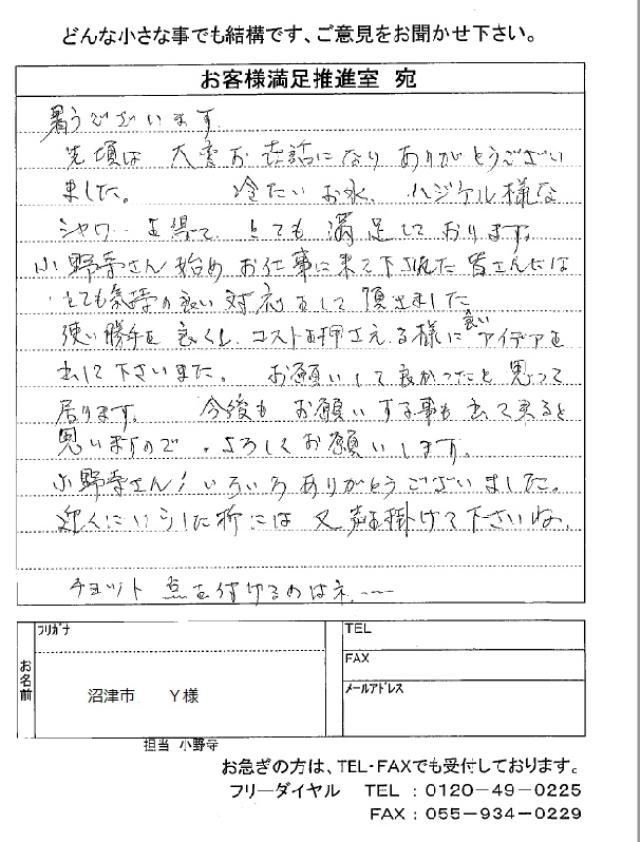 どんな小さな事でも結構です、ご意見をお聞かせ下さい。
お客様満足推進室 宛
暑うございます
先頃は 大変お世話になり ありがとうござい
ました。 冷たいお水、ハジケル様な
シャワーを得て、とても満足しております。
小野寺さん始め お仕事に来て下された皆さんには
とても気持の良い対応をして頂きました
使い勝手を良くし、コストを押さえる様に良いアイデアを
出して下さいました。 お願いして良かったと思って
居ります。 今後も お願いする事も出て来ると
思いますので、よろしくお願いします。
小野寺さん!いろいろありがとうございました。
近くにいらした折には又声を掛けて下さいね。
チョット 点を付けるのはネ、……
フリガナ
お名前
沼津市 Y様
TEL
FAX
メールアドレス
担当 小野寺
お急ぎの方は、TEL・FAXでも受付しております。
フリーダイヤル TEL：0120－49－0225
FAX：055－934－0229